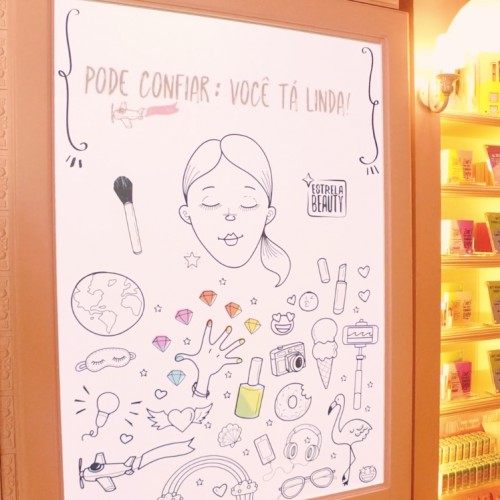 PODE CONFIAR: VOCÊ TÁ LINDA!
ESTRELA
BEAUTY